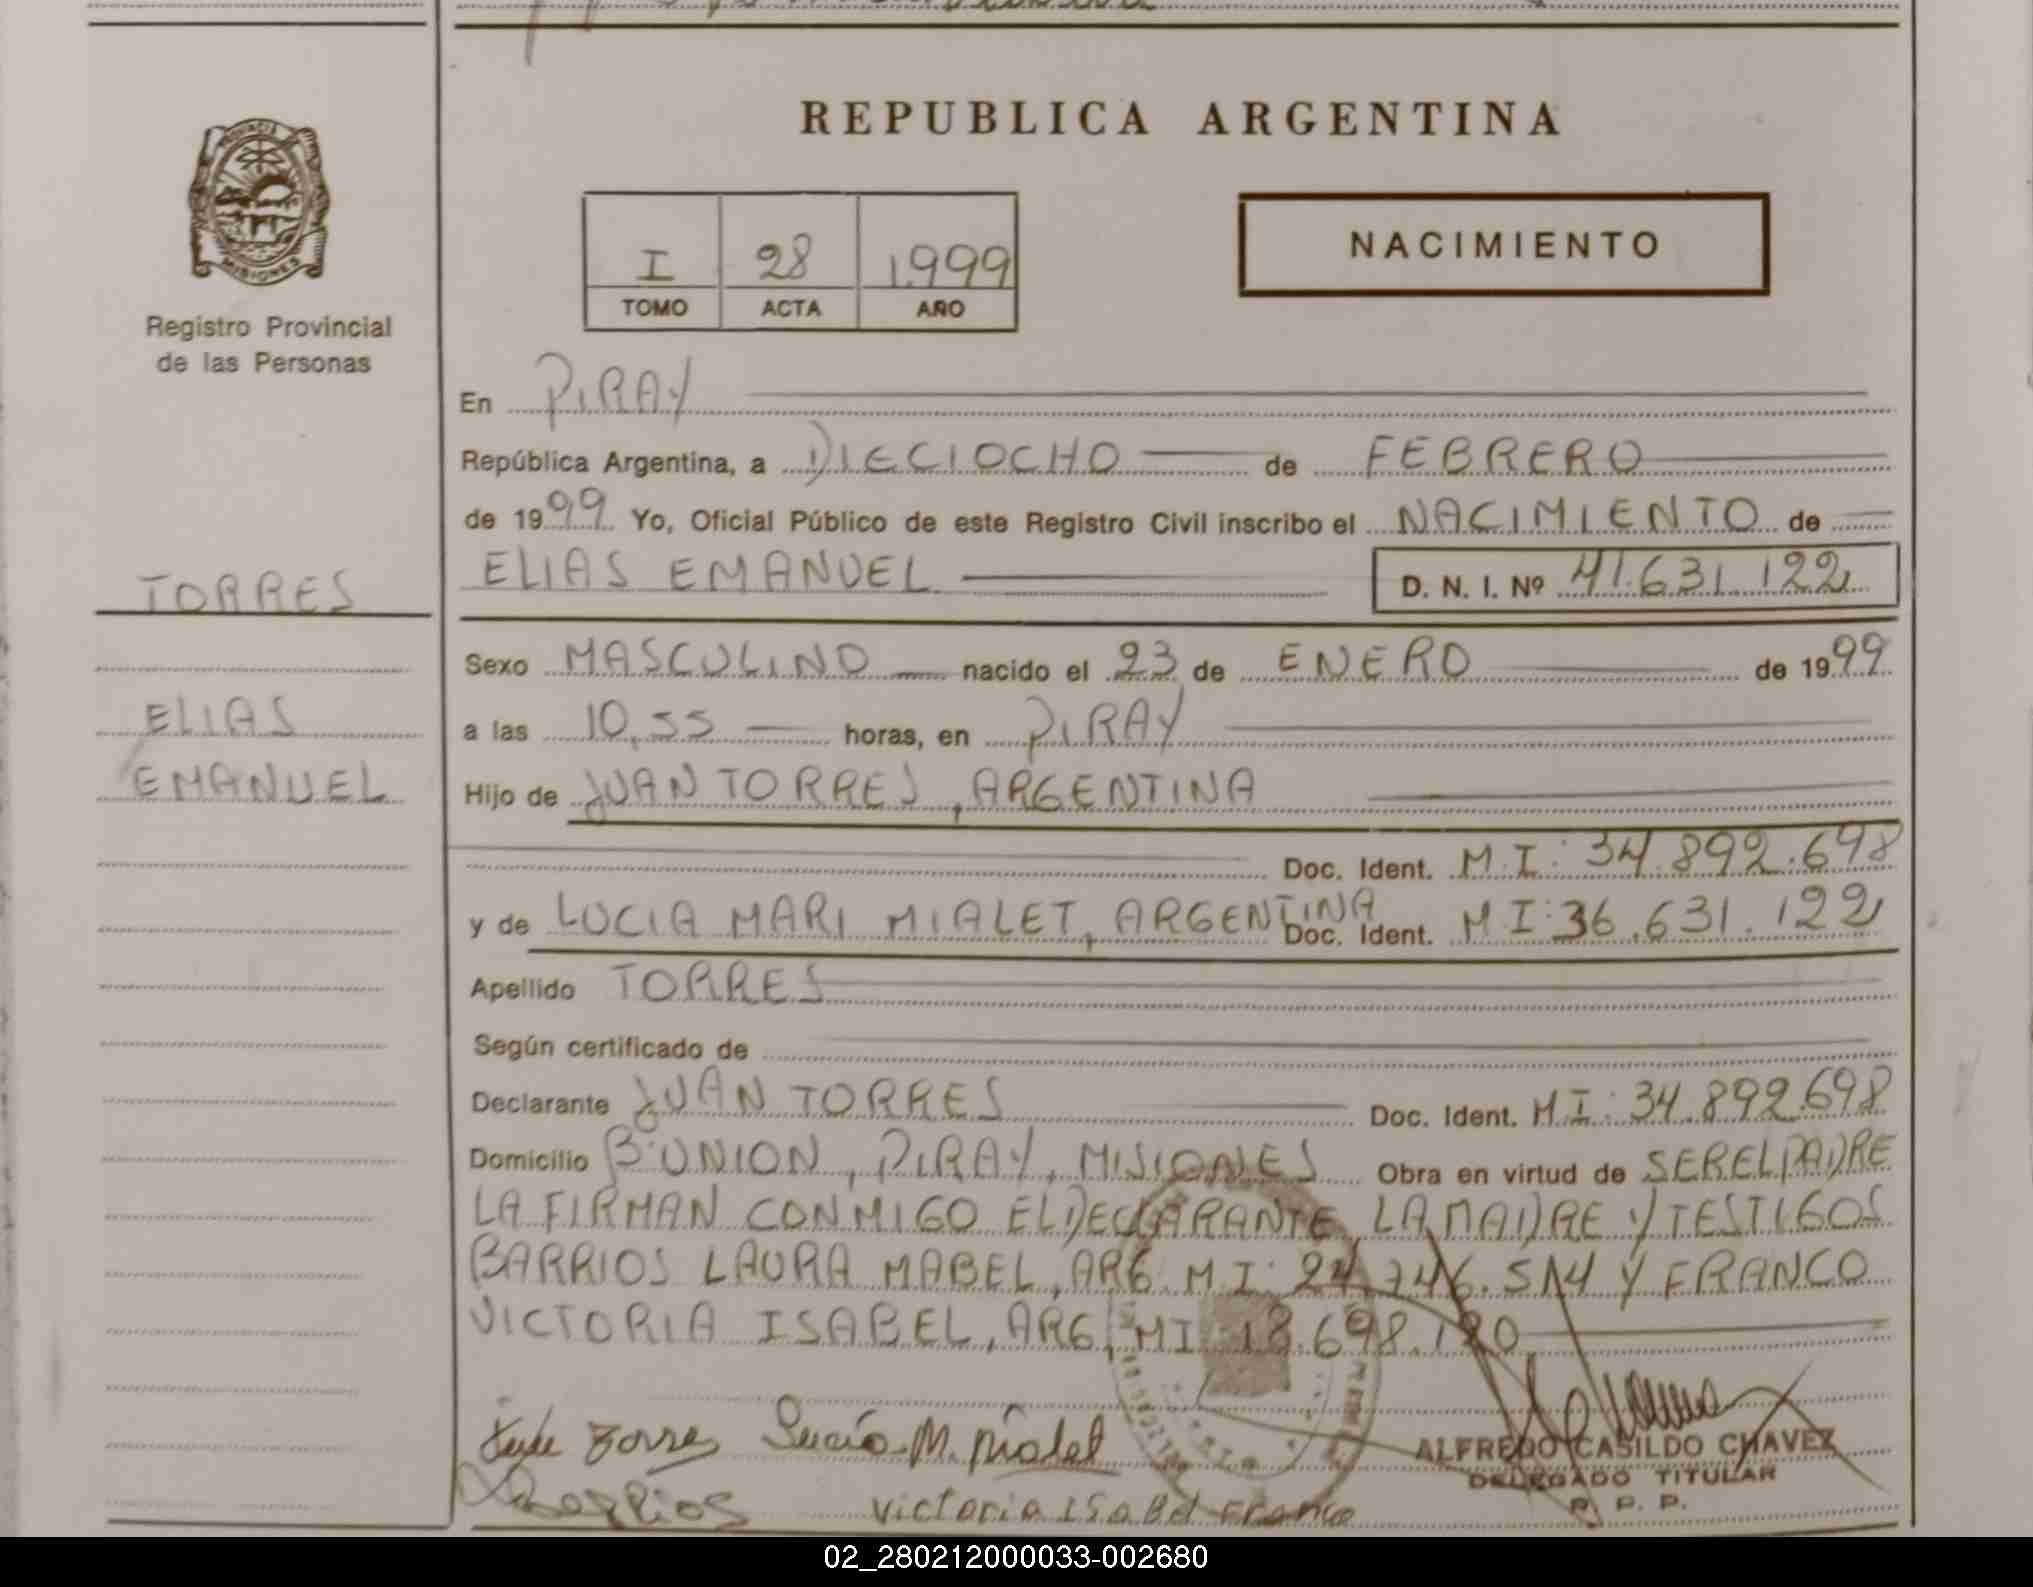 REPUBLICA ARGENTINA
PROVINCIA
MISIONES
Registro Provincial
de las Personas
I 28 1.999
TOMO ACTA AÑO
NACIMIENTO
En PIRAY
República Argentina, a DIECIOCHO de FEBRERO
de 1999 Yo, Oficial Público de este Registro Civil inscribo el NACIMIENTO de
ELIAS EMANUEL D. N. I. Nº 41.631.122
TORRES
ELIAS
EMANUEL
Sexo MASCULINO nacido el 23 de ENERO de 1999
a las 10,55 horas, en PIRAY
Hijo de JUAN TORRES, ARGENTINA
Doc. Ident. M.I: 34.892.698
y de LUCIA MARI MIALET, ARGENTINA Doc. Ident. M I: 36.631.122
Apellido TORRES
Según certificado de
Declarante JUAN TORRES Doc. Ident. M I: 34.892.698
Domicilio Bº UNION, PIRAY, MISIONES Obra en virtud de SER EL PADRE
LA FIRMAN CONMIGO EL DECLARANTE, LA MADRE Y TESTIGOS
BARRIOS LAURA MABEL, ARG. M.I: 24.746.514 Y FRANCO
VICTORIA ISABEL, ARG, MI 18.698.120
Torres Lucia M. Mialet
Barrios Victoria Isabel Franco
ALFREDO CASILDO CHAVEZ
DELEGADO TITULAR
R. P. P.
02_280212000033-002680